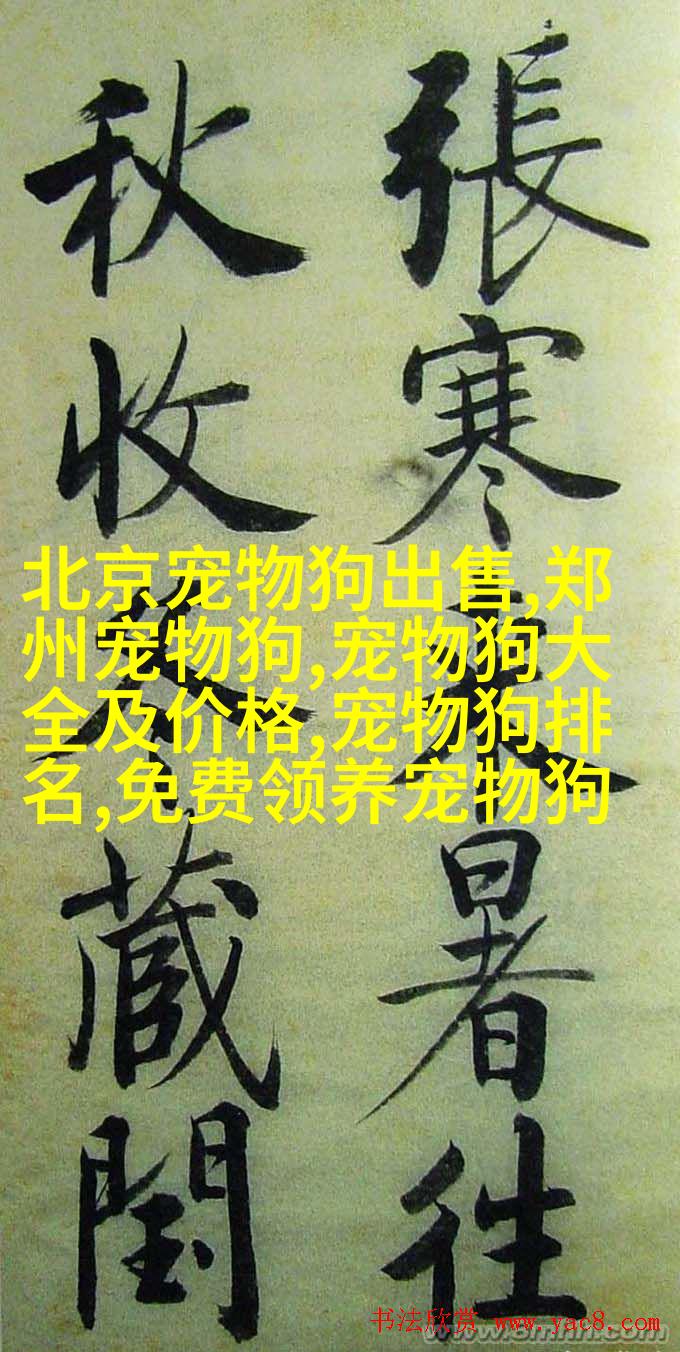 張寒來暑往
秋收冬藏閏
北京宠物狗出售,郑
州宠物狗,宠物狗大
全及价格,宠物狗排
名,免费领养宠物狗
书法欣赏 www.yac8.com